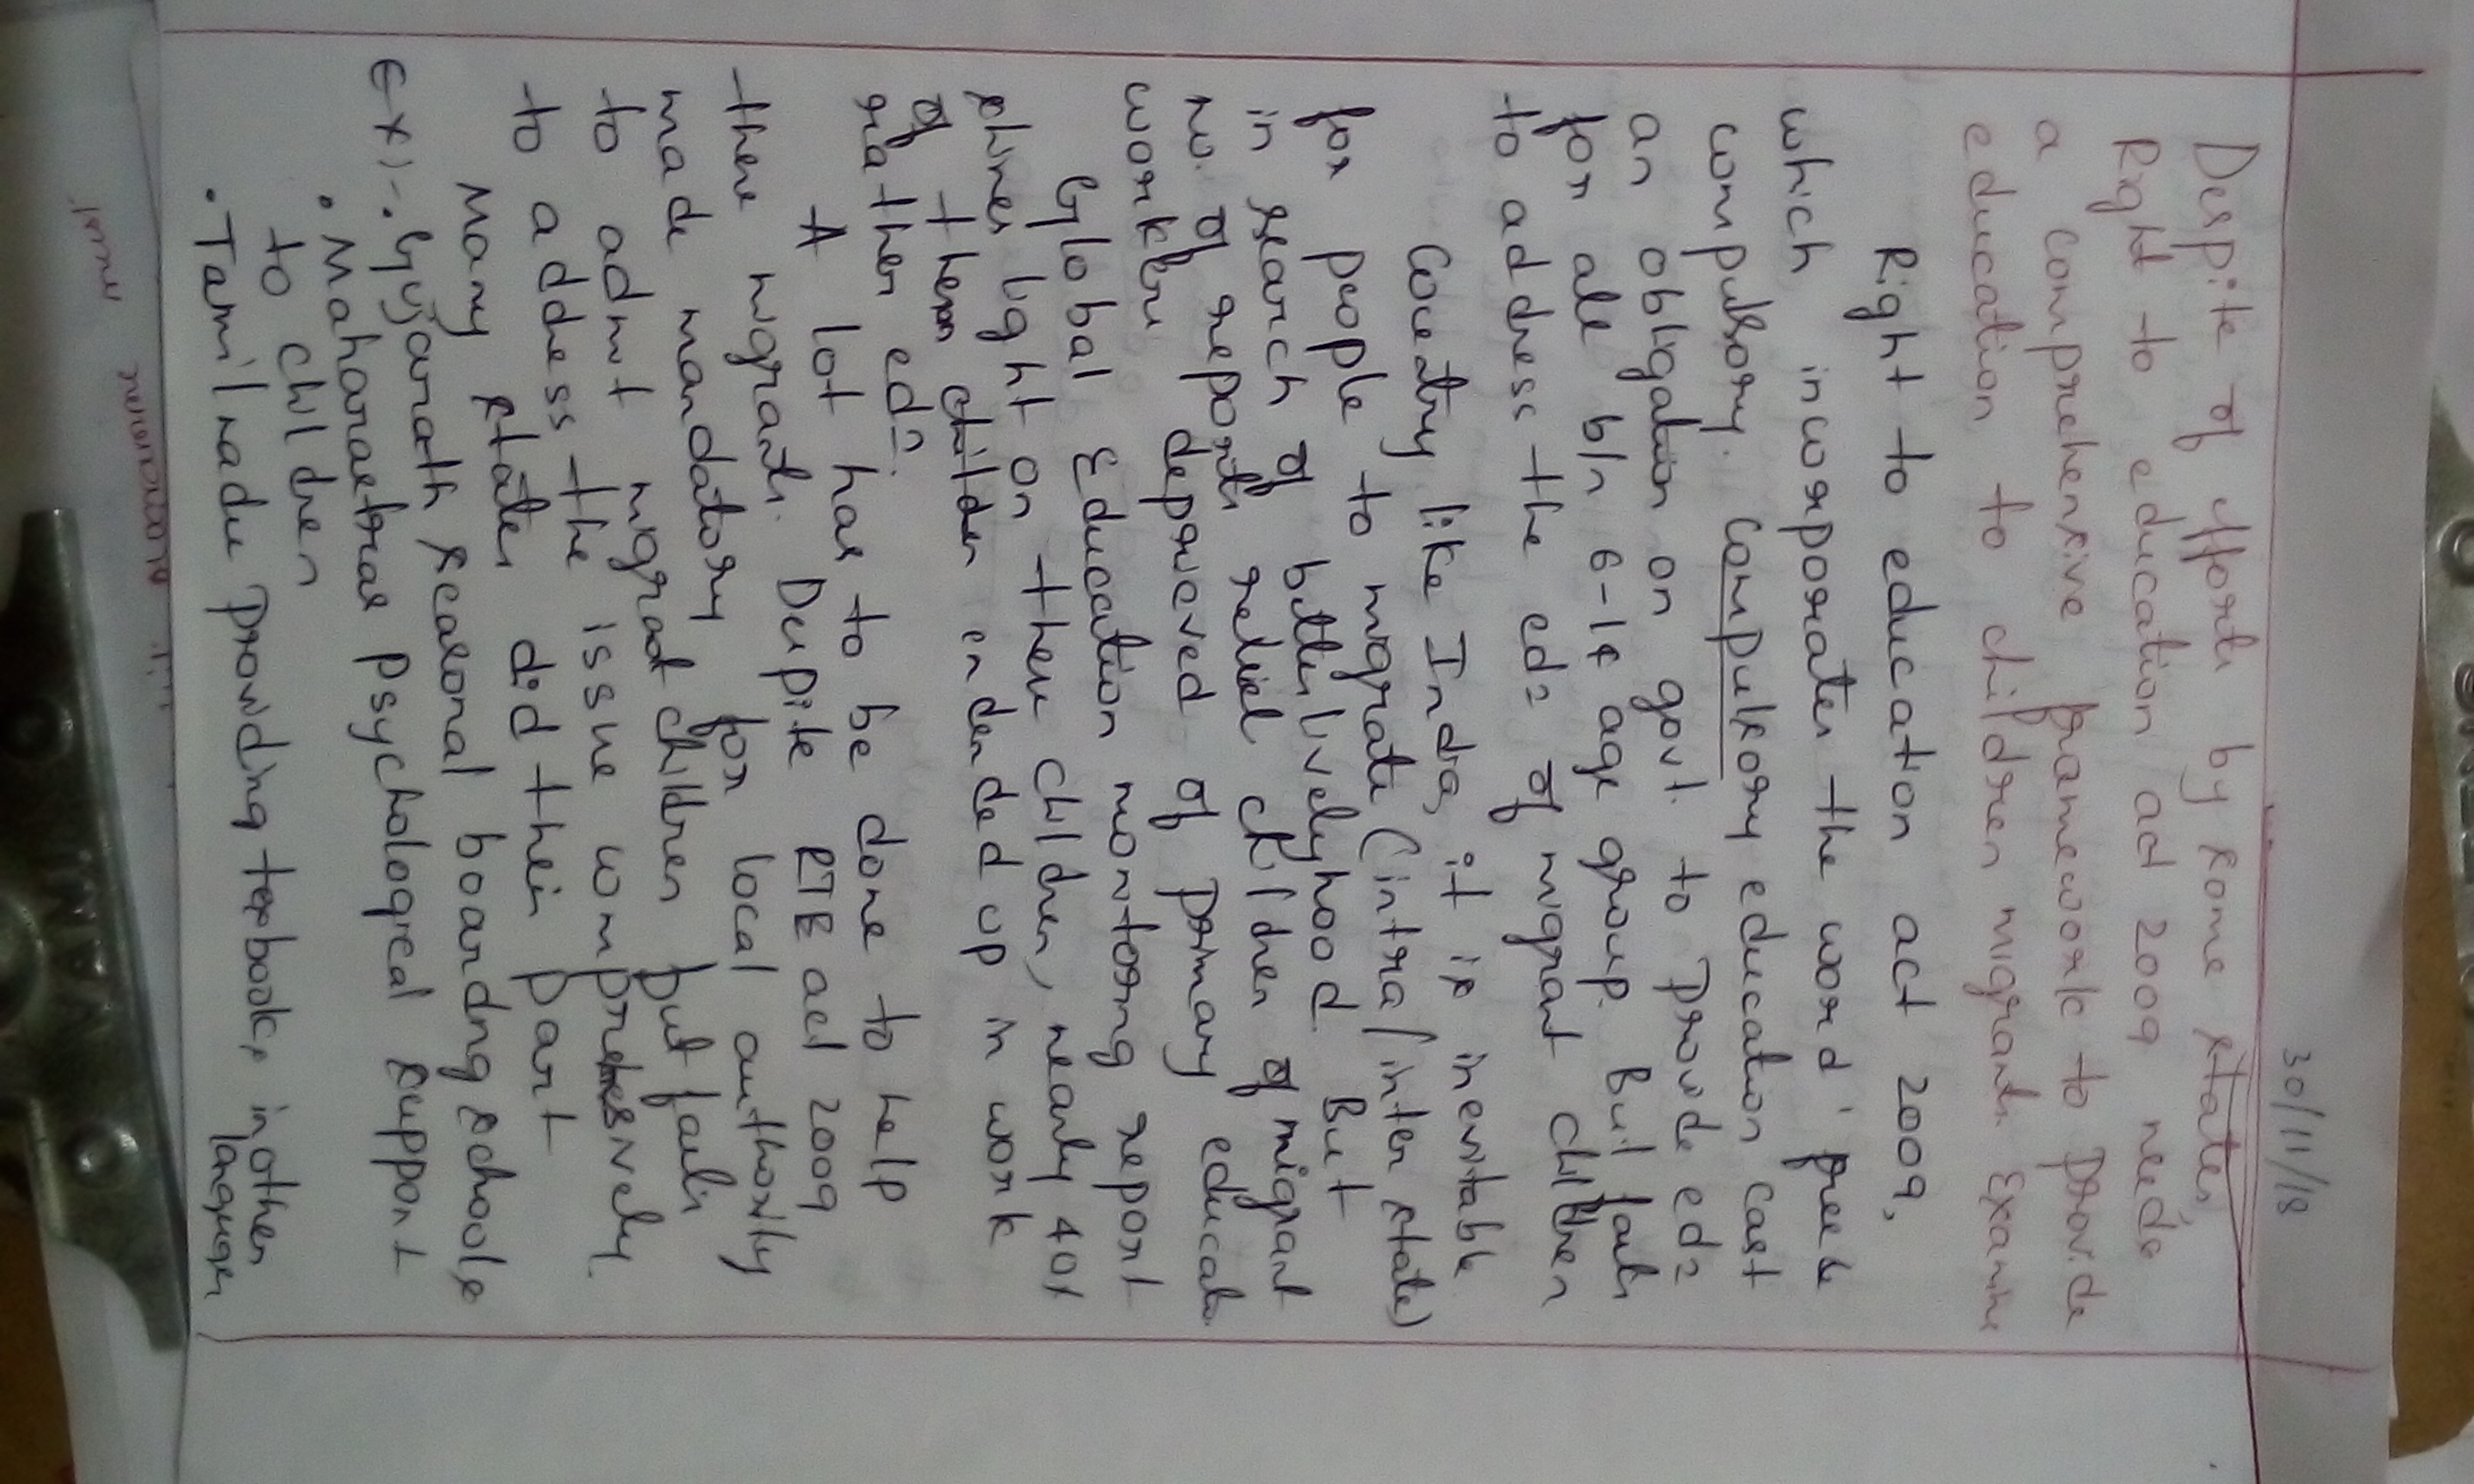 30/11/18
Despite of efforts by some states,
Right to education act 2009 needs
a comprehensive framework to provide
education to children migrants. Examine
Right to education act 2009,
which incorporates the word 'free &
compulsory. Compulsory education cast
an obligation on govt. to provide edn
for all b/n 6-14 age group. But fails
to address the edn of migrant children
Country like India, it is inevitable
for people to migrate (intra/inter state)
in search of better livelyhood. But
no. of reports relied children of migrant
workers deprieved of primary educatn.
Global Education monitoring report
shines light on these children, nearly 40%
of them children ended up in work
rather edn.
A lot has to be done to help
these migrants. Despite RTE act 2009
made mandatory for local authority
to admit migrant children but fails
to address the issue comprehesively.
Many states did their part
Ex:- • Gujarath seasonal boarding schools
• Maharastras psychological support
to children
• Tamilnadu providing texbooks in other
languages